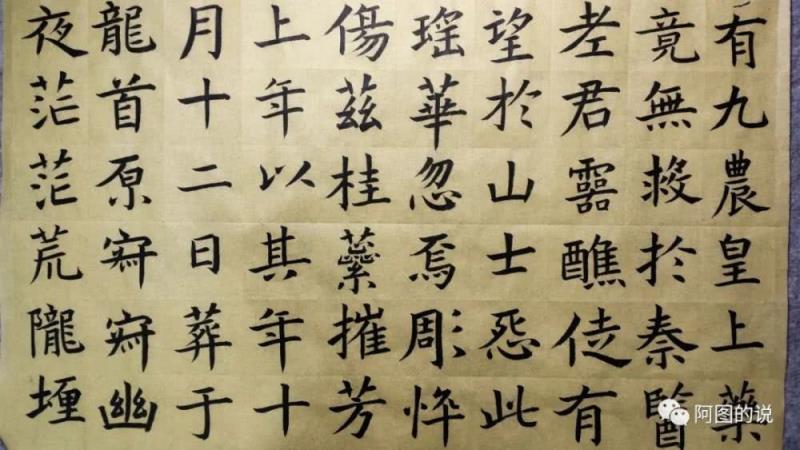 有九農皇上藥
竟無救於秦醫
老君靈醮徒有
望於山士怨此
瑤華忽焉彫悴
傷茲桂蘂摧芳
上年以其年十
月十二日葬于
龍首原寂寂幽
夜茫茫荒隴埋
阿图的说